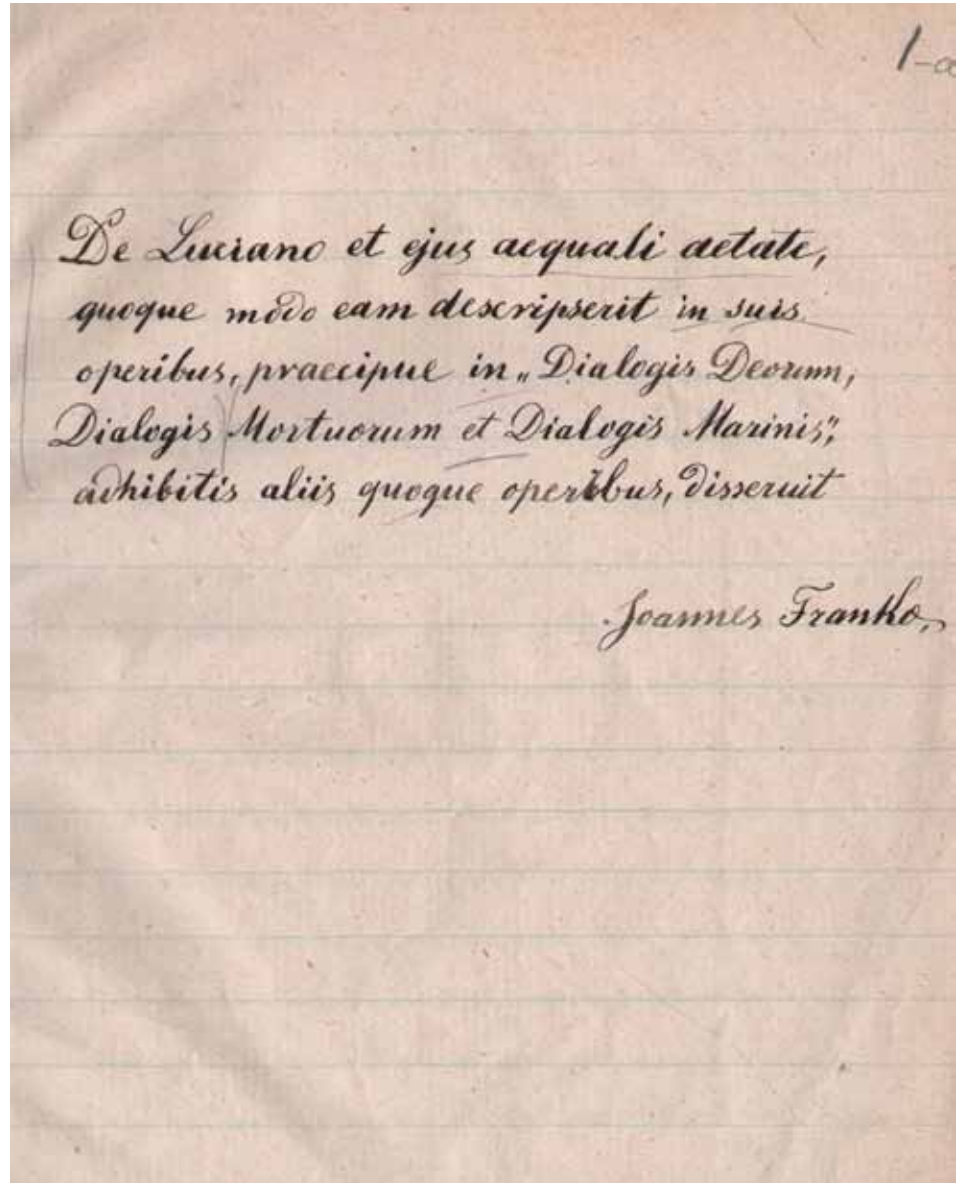 1-a
De Luciano et ejus aequali aetate,
quoque modo eam descripserit in suis
operibus, praecipue in „Dialogis Deorum,
Dialogis Mortuorum et Dialogis Marinis",
adhibitis aliis quoque operibus, disseruit
Joannes Franko,